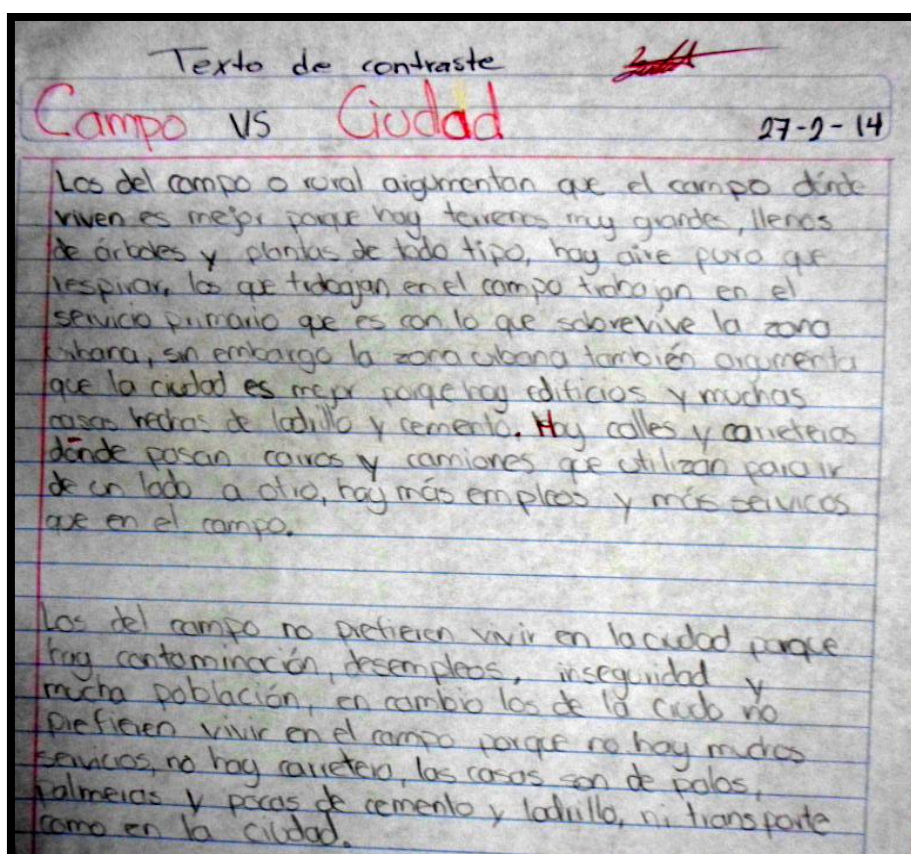 Texto de contraste
Campo vs Ciudad 27-2-14
Los del campo o rural argumentan que el campo dónde
viven es mejor porque hay terrenos muy grandes, llenos
de árboles y plantas de todo tipo, hay aire puro que
respirar, los que trabajan en el campo trabajan en el
servicio primario que es con lo que sobrevive la zona
urbana, sin embargo la zona urbana también argumenta
que la ciudad es mejor porqe hay edificios y muchas
casas hechas de ladrillo y cemento. Hay calles y carreteras
dónde pasan carros y camiones que utilizan para ir
de un lado a otro, hay más empleos y más servicos
que en el campo.
Los del campo no prefieren vivir en la ciudad porque
hay contaminación, desempleos, inseguridad y
mucha población, en cambio los de la ciudo no
prefieren vivir en el campo porque no hay muchos
servicios, no hay carretera, las casas son de palos,
palmeras y pocas de cemento y ladrillo, ni transporte
como en la ciudad.